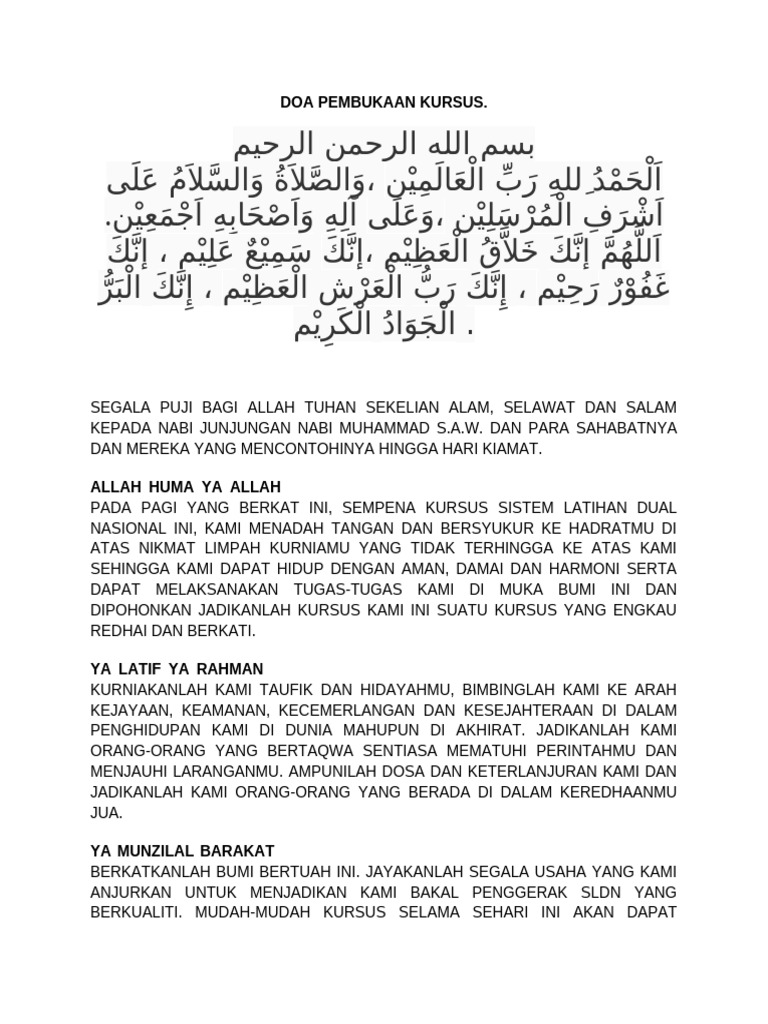 DOA PEMBUKAAN KURSUS.
بسم الله الرحمن الرحيم
اَلْحَمْدُ ِللهِ رَبِّ الْعَالَمِيْنِ ،وَالصَّلاَةُ وَالسَّلاَمُ عَلَى
اَشْرَفِ الْمُرْسَلِيْنِ ،وَعَلَى آلِهِ وَاَصْحَابِهِ اَجْمَعِيْنِ.
اَللَّهُمَّ إنَّكَ خَلاَّقُ الْعَظِيْمِ ،إنَّكَ سَمِيْعٌ عَلِيْمِ ، إنَّكَ
غَفُوْرٌ رَحِيْم ، إِنَّكَ رَبُّ الْعَرْشِ الْعَظِيْمِ ، إِنَّكَ الْبَرُّ
الْجَوَادُ الْكَرِيْم .
SEGALA PUJI BAGI ALLAH TUHAN SEKELIAN ALAM, SELAWAT DAN SALAM
KEPADA NABI JUNJUNGAN NABI MUHAMMAD S.A.W. DAN PARA SAHABATNYA
DAN MEREKA YANG MENCONTOHINYA HINGGA HARI KIAMAT.
ALLAH HUMA YA ALLAH
PADA PAGI YANG BERKAT INI, SEMPENA KURSUS SISTEM LATIHAN DUAL
NASIONAL INI, KAMI MENADAH TANGAN DAN BERSYUKUR KE HADRATMU DI
ATAS NIKMAT LIMPAH KURNIAMU YANG TIDAK TERHINGGA KE ATAS KAMI
SEHINGGA KAMI DAPAT HIDUP DENGAN AMAN, DAMAI DAN HARMONI SERTA
DAPAT MELAKSANAKAN TUGAS-TUGAS KAMI DI MUKA BUMI INI DAN
DIPOHONKAN JADIKANLAH KURSUS KAMI INI SUATU KURSUS YANG ENGKAU
REDHAI DAN BERKATI.
YA LATIF YA RAHMAN
KURNIAKANLAH KAMI TAUFIK DAN HIDAYAHMU, BIMBINGLAH KAMI KE ARAH
KEJAYAAN, KEAMANAN, KECEMERLANGAN DAN KESEJAHTERAAN DI DALAM
PENGHIDUPAN KAMI DI DUNIA MAHUPUN DI AKHIRAT. JADIKANLAH KAMI
ORANG-ORANG YANG BERTAQWA SENTIASA MEMATUHI PERINTAHMU DAN
MENJAUHI LARANGANMU. AMPUNILAH DOSA DAN KETERLANJURAN KAMI DAN
JADIKANLAH KAMI ORANG-ORANG YANG BERADA DI DALAM KEREDHAANMU
JUA.
YA MUNZILAL BARAKAT
BERKATKANLAH BUMI BERTUAH INI. JAYAKANLAH SEGALA USAHA YANG KAMI
ANJURKAN UNTUK MENJADIKAN KAMI BAKAL PENGGERAK SLDN YANG
BERKUALITI. MUDAH-MUDAH KURSUS SELAMA SEHARI INI AKAN DAPAT